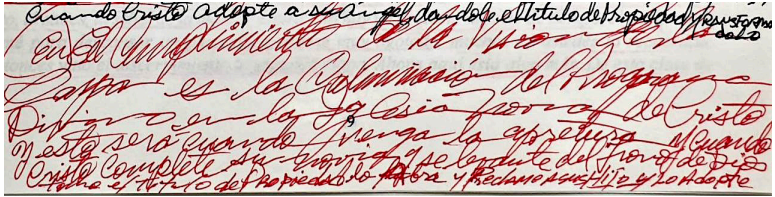 Cuando Cristo adopte a su Angel dandole el Titulo de Propiedad y transformandolo
En el Cumplimiento de la Vision de la
Carpa es la Culminacion del Programa
Divino en la Iglesia novia de Cristo
y esto será cuando venga la apretura y cuando
Cristo Complete su novia y se levante del Trono de Dios
tome el Titulo de Propiedad lo Abra y Reclame a sus Hijos y Lo Adopte